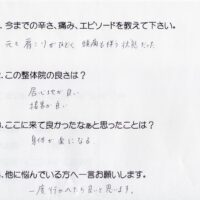 .今までの辛さ、痛み、エピソードを教えて下さい。
元々肩こりがひどく 頭痛も伴う状態だった
.この整体院の良さは？
居心地が良い
接客が良い
.ここに来て良かったなぁと思ったことは？
身体が楽になる
.他に悩んでいる方へ一言お願いします。
一度行かれたら良いと思います。